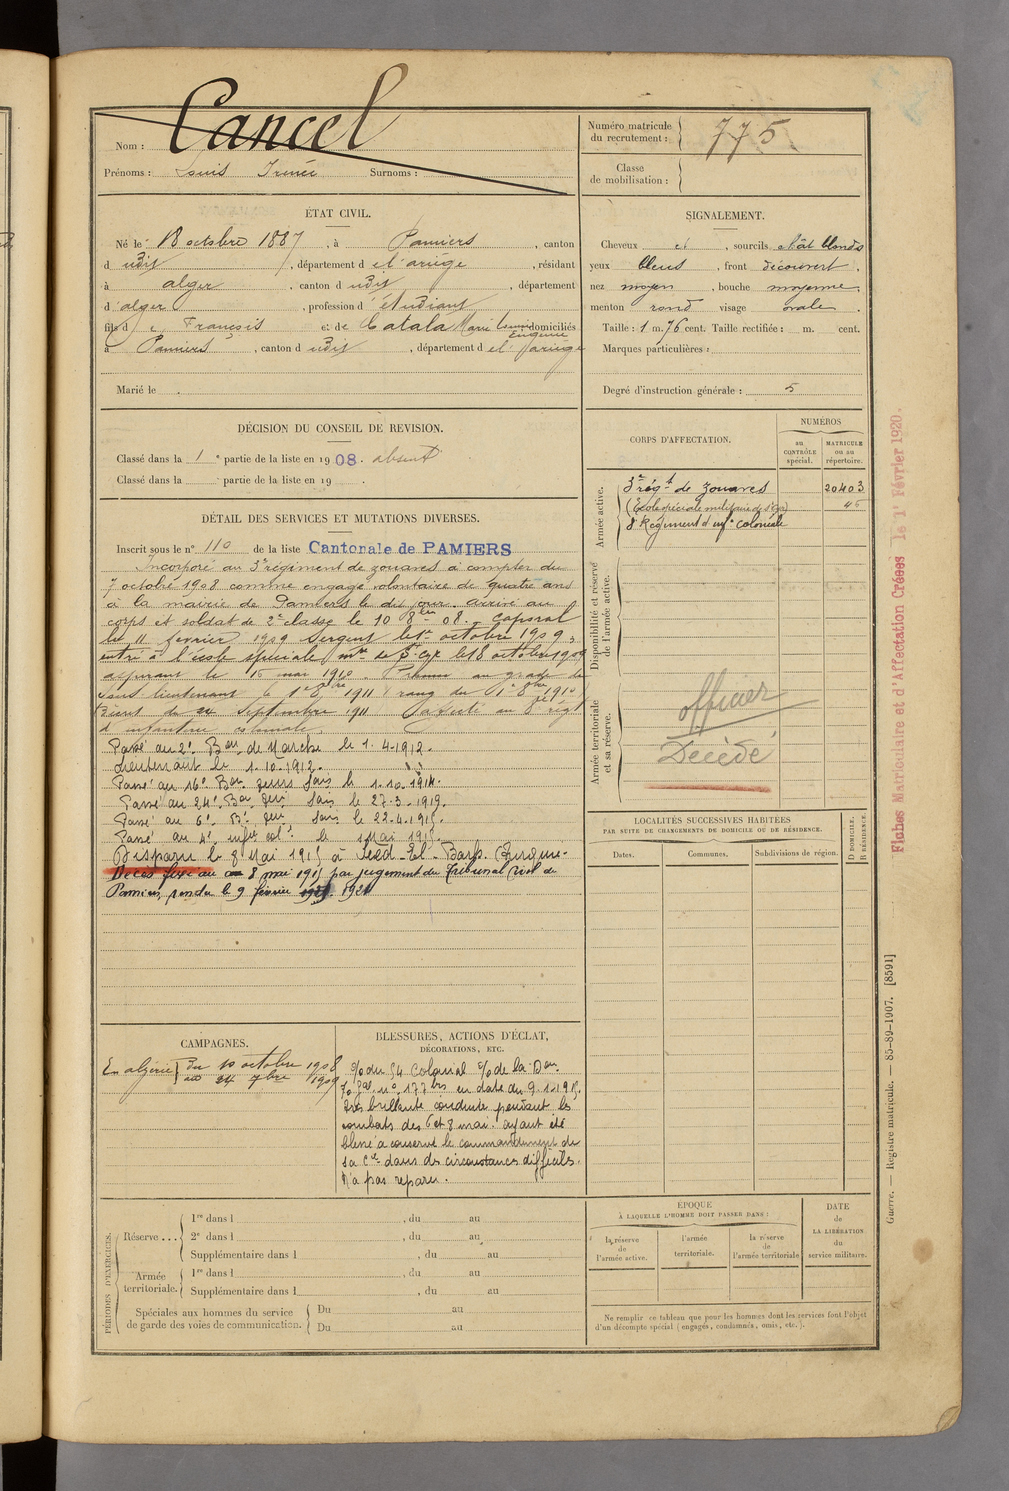 Nom : Cancel
Prénoms : Louis Irénée Surnoms :
Numéro matricule
du recrutement : 775
Classe
de mobilisation :
ÉTAT CIVIL.
Né le 18 octobre 1887, à Pamiers, canton
d udit, département d e l'ariège, résidant
à alger, canton d udit, département
d'alger, profession d'étudiant
fils d e François et de Catala Marie Louise domiciliés
Eugénie
à Pamiers, canton d udit, département d e l'ariège
Marié le
SIGNALEMENT.
Cheveux et, sourcils chât blonds
yeux bleus, front découvert,
nez moyen, bouche moyenne,
menton rond visage ovale.
Taille : 1 m. 76 cent. Taille rectifiée : m. cent.
Marques particulières :
Degré d'instruction générale : 5
DÉCISION DU CONSEIL DE REVISION.
Classé dans la 1e partie de la liste en 1908. absent
Classé dans la partie de la liste en 19 .
DÉTAIL DES SERVICES ET MUTATIONS DIVERSES.
Inscrit sous le n° 110 de la liste Cantonale de PAMIERS
Incorporé au 3e régiment de zouaves à compter du
7 octobre 1908 comme engagé volontaire de quatre ans
à la mairie de Pamiers le dit jour. arrivé au
corps et soldat de 2e classe le 10 8bre 08. Caporal
le 11 février 1909 Sergent le 1er octobre 1909,
entré à l'école spéciale mre de St Cyr le 18 octobre 1909
aspirant le 15 mai 1910. Promu au grade de
sous-lieutenant le 1er 8bre 1911 rang du 1er 8bre 1910
Décret du 24 septembre 1911 au 8e régt
d'infanterie coloniale
Passé au 2e Bon de Marche le 1.4.1912.
Lieutenant le 1.10.1912.
Passé au 16e Bon le 1.10.1914.
Passé au 24e Bon le 27-3-1915.
Passé au 6e le 22.4.1915.
Passé au 4e infie cole le 1 Mai 1915.
Disparu le 8 Mai 1915 à Sedd-El-Barh. Turquie.
Décès fixé au 8 mai 1915 par jugement du Tribunal Civil de
Pamiers, rendu le 9 février 1921
CORPS D'AFFECTATION.
NUMÉROS
AU
CONTRÔLE
spécial.
MATRICULE
ou au
répertoire.
Armée active.
3e régt de zouaves 20403
(École spéciale militaire de St Cyr) 45
8e Régiment d'infie coloniale
Disponibilité et réserve
de l'armée active.
Armée territoriale
et sa réserve.
officier
Décédé
LOCALITÉS SUCCESSIVES HABITÉES
PAR SUITE DE CHANGEMENTS DE DOMICILE OU DE RÉSIDENCE.
Dates. Communes. Subdivisions de région.
D DOMICILE.
R RÉSIDENCE.
CAMPAGNES.
En algérie du 10 octobre 1908
au 24 7bre 1909
BLESSURES, ACTIONS D'ÉCLAT,
DÉCORATIONS, ETC.
de la
n° 177 bis en date du
Très brillante conduite pendant les
combats des 6 et 8 mai. ayant été
blessé a conservé le commandement de
sa Cie dans des circonstances difficiles.
N'a pas reparu.
PÉRIODES D'EXERCICES.
Réserve.... 1re dans l , du au
2e dans l , du au
Supplémentaire dans l , du au
Armée
territoriale. 1re dans l , du au
Supplémentaire dans l , du au
Spéciales aux hommes du service
de garde des voies de communication. Du au
Du au
ÉPOQUE
À LAQUELLE L'HOMME DOIT PASSER DANS :
la réserve
de
l'armée active.
l'armée
territoriale.
la réserve
de
l'armée territoriale
DATE
de
LA LIBÉRATION
du
service militaire.
Ne remplir ce tableau que pour les hommes dont les services font l'objet
d'un décompte spécial (engagés, condamnés, omis, etc.).
Fiches Matriculaire et d'Affectation Créées le 1er Février 1920.
Guerre. — Registre matricule. — 85-89-1907. [8591]